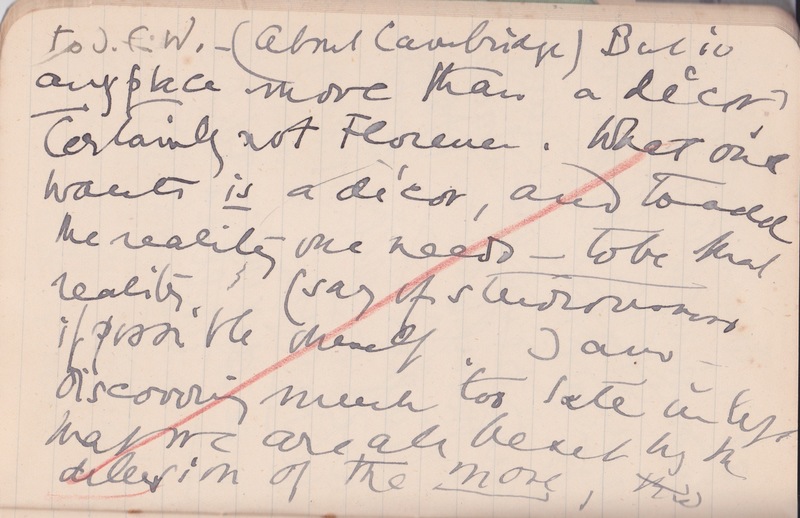 to J. E. W. – (About Cambridge) But is
any place more than a décor?
Certainly not Florence. What one
wants is a décor, and to add
the reality one needs – to be that
reality (say of studiousness
if possible oneself) I am –
discovering much too late in life
that we are all beset by the
delusion of the more, this